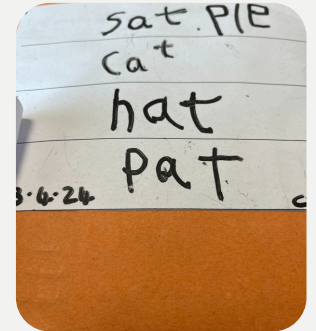 sat.PIE
cat
hat
Pat
3.4.24 c